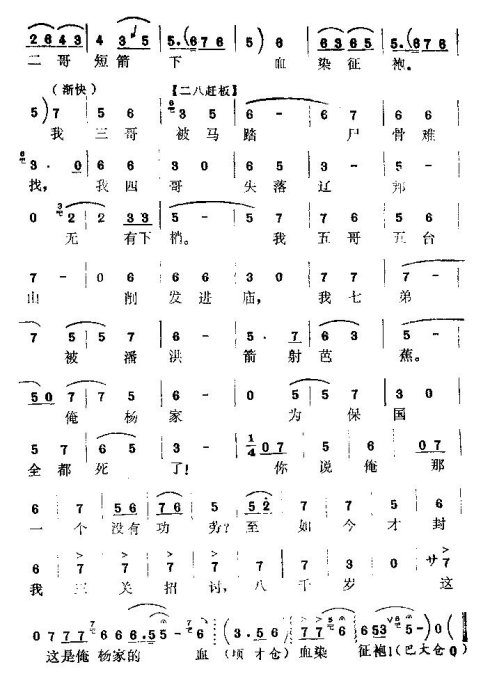 2643 4 3 5 5.(676 5) 6 6365 5.(676
二哥 短箭 下 血 染征 袍。
(渐快) 【二八赶板】
5) 7 5 6 6 3 5 6 - 7 6 6
我 三哥 被马 踏 尸 骨难
3 . 0 6 6 3 0 6 5 5 -
找， 我四 哥 失落 辽 邦
0 2 2 33 5 - 5 7 7 5 6
无 有下 梢。 我 五哥 五台
7 - 0 6 6 6 3 0 5 7 7 -
山 削 发进 庙， 我七 弟
7 5 5 7 6 - 5 . 7 6 3 5 -
被 潘洪 箭 射芭 蕉。
507 6 7 0 7 5 5 7 3 0
俺 杨 家 为 保 国
5 7 6 5 3 - 1/4 07 5 6 07
全都 死 了！ 你 说 俺 那
6 7 56 76 5 52 7 7 5 6
一 个 没有 功 劳？ 至 如 今 才 封
6 7 7 7 7 7 7 3 0 サ 7
我 三 关 招 讨， 八 千 岁 这
0 7 7 7 6 6 6 . 5 5 - 6
这是俺 杨家的 血 (项 才仓) 血染 征袍！(巴大仓 0)